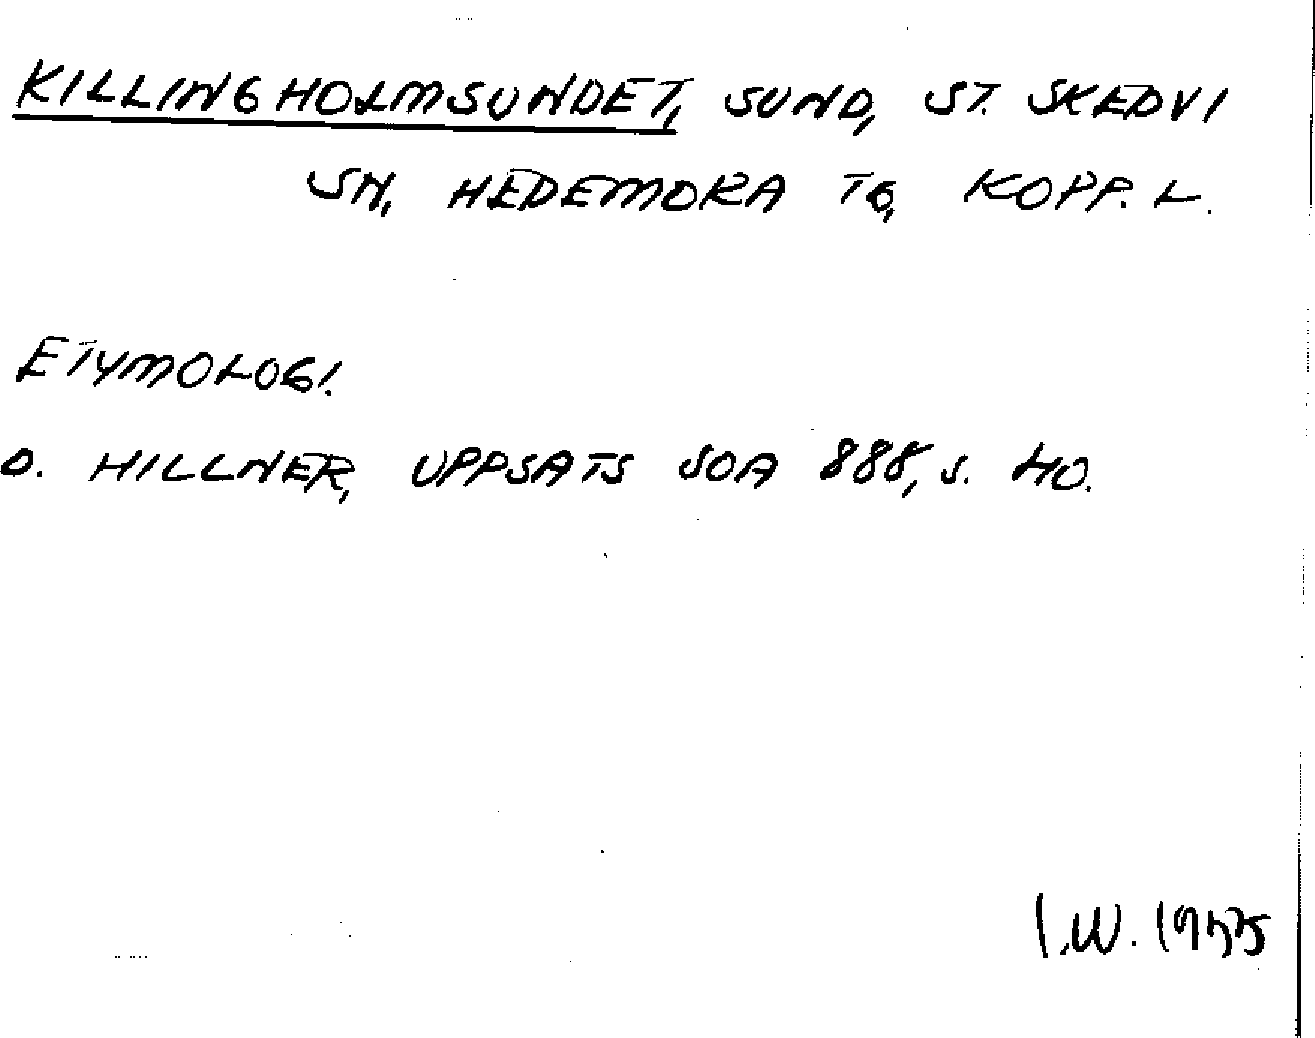 KILLINGHOLMSUNDET, SUND, ST. SKEDVI
SN, HEDEMORA TG, KOPP. L.
ETYMOLOGI.
O. HILLNER, UPPSATS SOA 888, S. 40.
I.W.